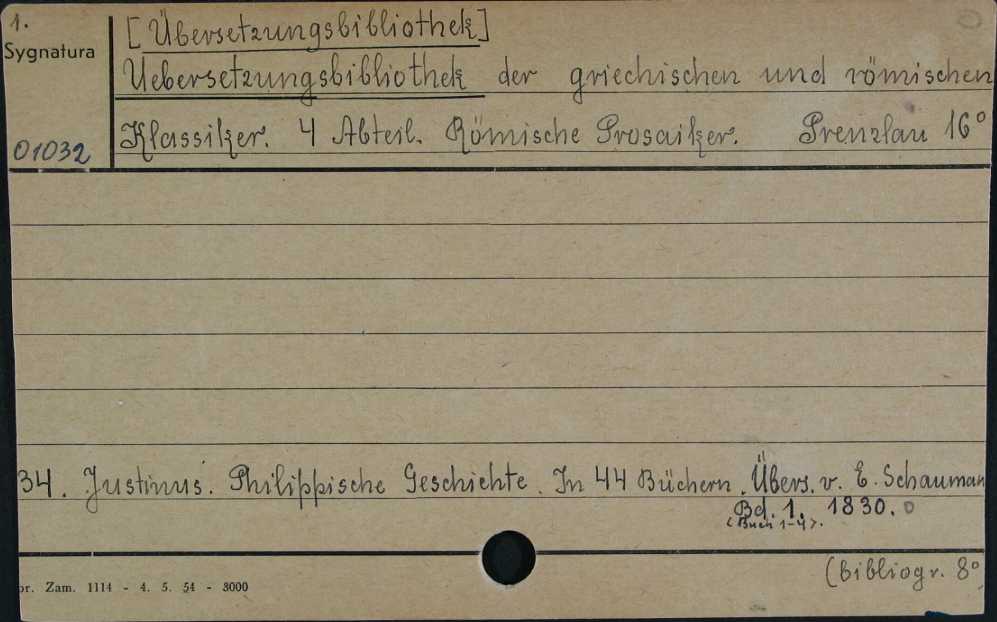 1.
[Übersetzungsbibliothek]
Sygnatura
Uebersetzungsbibliothek der griechischen und römischen
Klassiker. 4 Abteil. Römische Prosaiker. Prenzlau 16°
01032
34. Justinus. Philippische Geschichte. In 44 Büchern. Übers. v. E. Schauman
Bd. 1. 1830.
<Buch 1-4>.
(bibliogr. 8°
or. Zam. 1114 - 4. 5. 54 - 3000